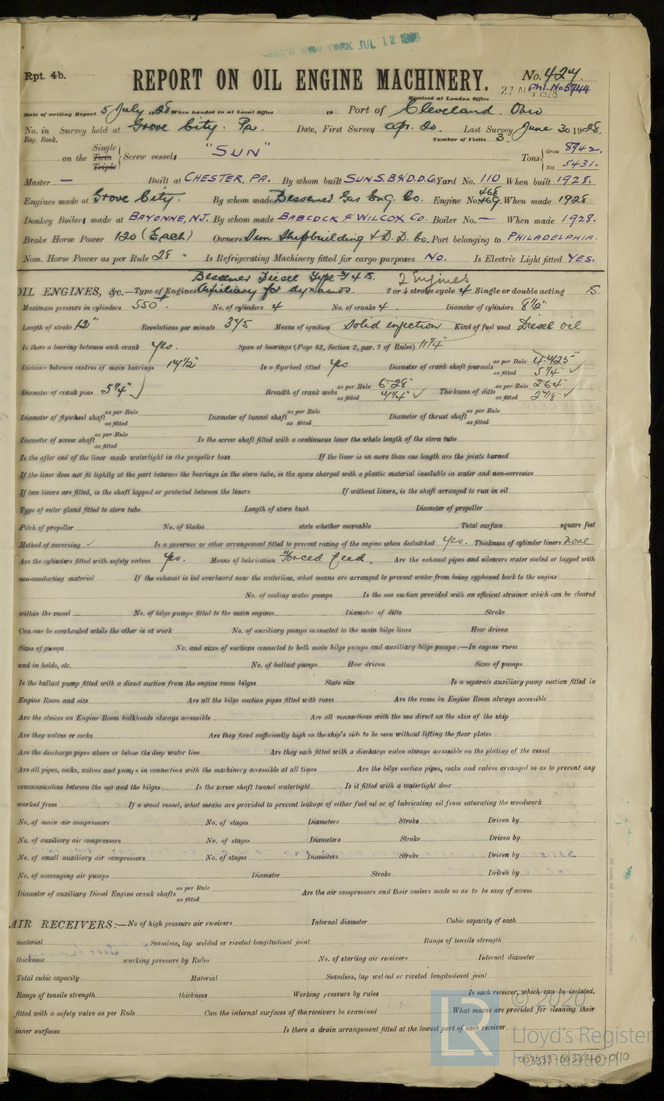 NEW YORK JUL 12 1928
Rpt. 4b. REPORT ON OIL ENGINE MACHINERY. No. 427
Phl. No 5744
Received at London Office
Date of writing Report 5 July 28 When handed in at Local Office 19 Port of Cleveland, Ohio
No. in Reg. Book. Survey held at Grove City. Pa. Date, First Survey Apr. 20. Last Survey June 30 1928.
Number of Visits 3.
on the Single Twin Triple Screw vessel "SUN" Tons Gross 8942. Net 5431.
Master — Built at CHESTER, PA. By whom built SUN S.B & D.D. Co. Yard No. 110 When built 1928.
Engines made at Grove City. By whom made Bessemer Gas Eng. Co. Engine No. 468 469 When made 1928
Donkey Boilers made at BAYONNE, N.J. By whom made BABCOCK & WILCOX CO. Boiler No. — When made 1928.
Brake Horse Power 120 (Each) Owners Sun Shipbuilding & D. D. Co. Port belonging to PHILADELPHIA.
Nom. Horse Power as per Rule 28 Is Refrigerating Machinery fitted for cargo purposes NO. Is Electric Light fitted YES.
Bessemer Diesel Type 2 Engines
OIL ENGINES, &c.—Type of Engines Auxiliary for dynamos. 2 or 4 stroke cycle 4 Single or double acting S
Maximum pressure in cylinders 550 No. of cylinders 4 No. of cranks 4 Diameter of cylinders 8½"
Length of stroke 12" Revolutions per minute 375 Means of ignition Solid injection Kind of fuel used Diesel oil
Is there a bearing between each crank Yes. Span of bearings (Page 92, Section 2, par. 7 of Rules) 11¼"
Distance between centres of main bearings 14½" Is a flywheel fitted Yes Diameter of crank shaft journals as per Rule 4.425" as fitted 5¼"
Diameter of crank pins 5¼" Breadth of crank webs as per Rule 6.28" as fitted Thickness of ditto as per Rule 2.64" as fitted 2⅞"
Diameter of flywheel shaft as per Rule as fitted Diameter of tunnel shaft as per Rule as fitted Diameter of thrust shaft as per Rule as fitted
Diameter of screw shaft as per Rule as fitted Is the screw shaft fitted with a continuous liner the whole length of the stern tube
Is the after end of the liner made watertight in the propeller boss If the liner is in more than one length are the joints burned
If the liner does not fit tightly at the part between the bearings in the stern tube, is the space charged with a plastic material insoluble in water and non-corrosive
If two liners are fitted, is the shaft lapped or protected between the liners If without liners, is the shaft arranged to run in oil
Type of outer gland fitted to stern tube Length of stern bush Diameter of propeller
Pitch of propeller No. of blades state whether moveable Total surface square feet
Method of reversing Is a governor or other arrangement fitted to prevent racing of the engine when declutched Yes. Thickness of cylinder liners None
Are the cylinders fitted with safety valves Yes. Means of lubrication Forced feed. Are the exhaust pipes and silencers water cooled or lagged with
non-conducting material If the exhaust is led overboard near the waterline, what means are arranged to prevent water from being syphoned back to the engine
No. of cooling water pumps Is the sea suction provided with an efficient strainer which can be cleared
within the vessel No. of bilge pumps fitted to the main engines Diameter of ditto Stroke
Can one be overhauled while the other is at work No. of auxiliary pumps connected to the main bilge lines How driven
Sizes of pumps No. and sizes of suctions connected to both main bilge pumps and auxiliary bilge pumps:—In engine room
and in holds, etc. No. of ballast pumps How driven Sizes of pumps
Is the ballast pump fitted with a direct suction from the engine room bilges State size Is a separate auxiliary pump suction fitted in
Engine Room and size Are all the bilge suction pipes fitted with roses Are the roses in Engine Room always accessible
Are the sluices on Engine Room bulkheads always accessible Are all connections with the sea direct on the skin of the ship
Are they valves or cocks Are they fixed sufficiently high on the ship's side to be seen without lifting the floor plates
Are the discharge pipes above or below the deep water line Are they each fitted with a discharge valve always accessible on the plating of the vessel
Are all pipes, cocks, valves and pumps in connection with the machinery accessible at all times Are the bilge suction pipes, cocks and valves arranged so as to prevent any
communication between the sea and the bilges Is the screw shaft tunnel watertight Is it fitted with a watertight door
worked from If a wood vessel, what means are provided to prevent leakage of either fuel oil or of lubricating oil from saturating the woodwork
No. of main air compressors No. of stages Diameters Stroke Driven by
No. of auxiliary air compressors No. of stages Diameters Stroke Driven by
No. of small auxiliary air compressors No. of stages Diameters Stroke Driven by
No. of scavenging air pumps Diameter Stroke Driven by
Diameter of auxiliary Diesel Engine crank shafts as per Rule as fitted Are the air compressors and their coolers made so as to be easy of access
AIR RECEIVERS:—No of high pressure air receivers Internal diameter Cubic capacity of each
material Seamless, lap welded or riveted longitudinal joint Range of tensile strength
thickness working pressure by Rules No. of starting air receivers Internal diameter
Total cubic capacity Material Seamless, lap welded or riveted longitudinal joint
Range of tensile strength thickness Working pressure by rules Is each receiver, which can be isolated,
fitted with a safety valve as per Rule Can the internal surfaces of the receivers be examined What means are provided for cleaning their
inner surfaces Is there a drain arrangement fitted at the lowest part of each receiver
LR © 2020
Lloyd's Register
Foundation